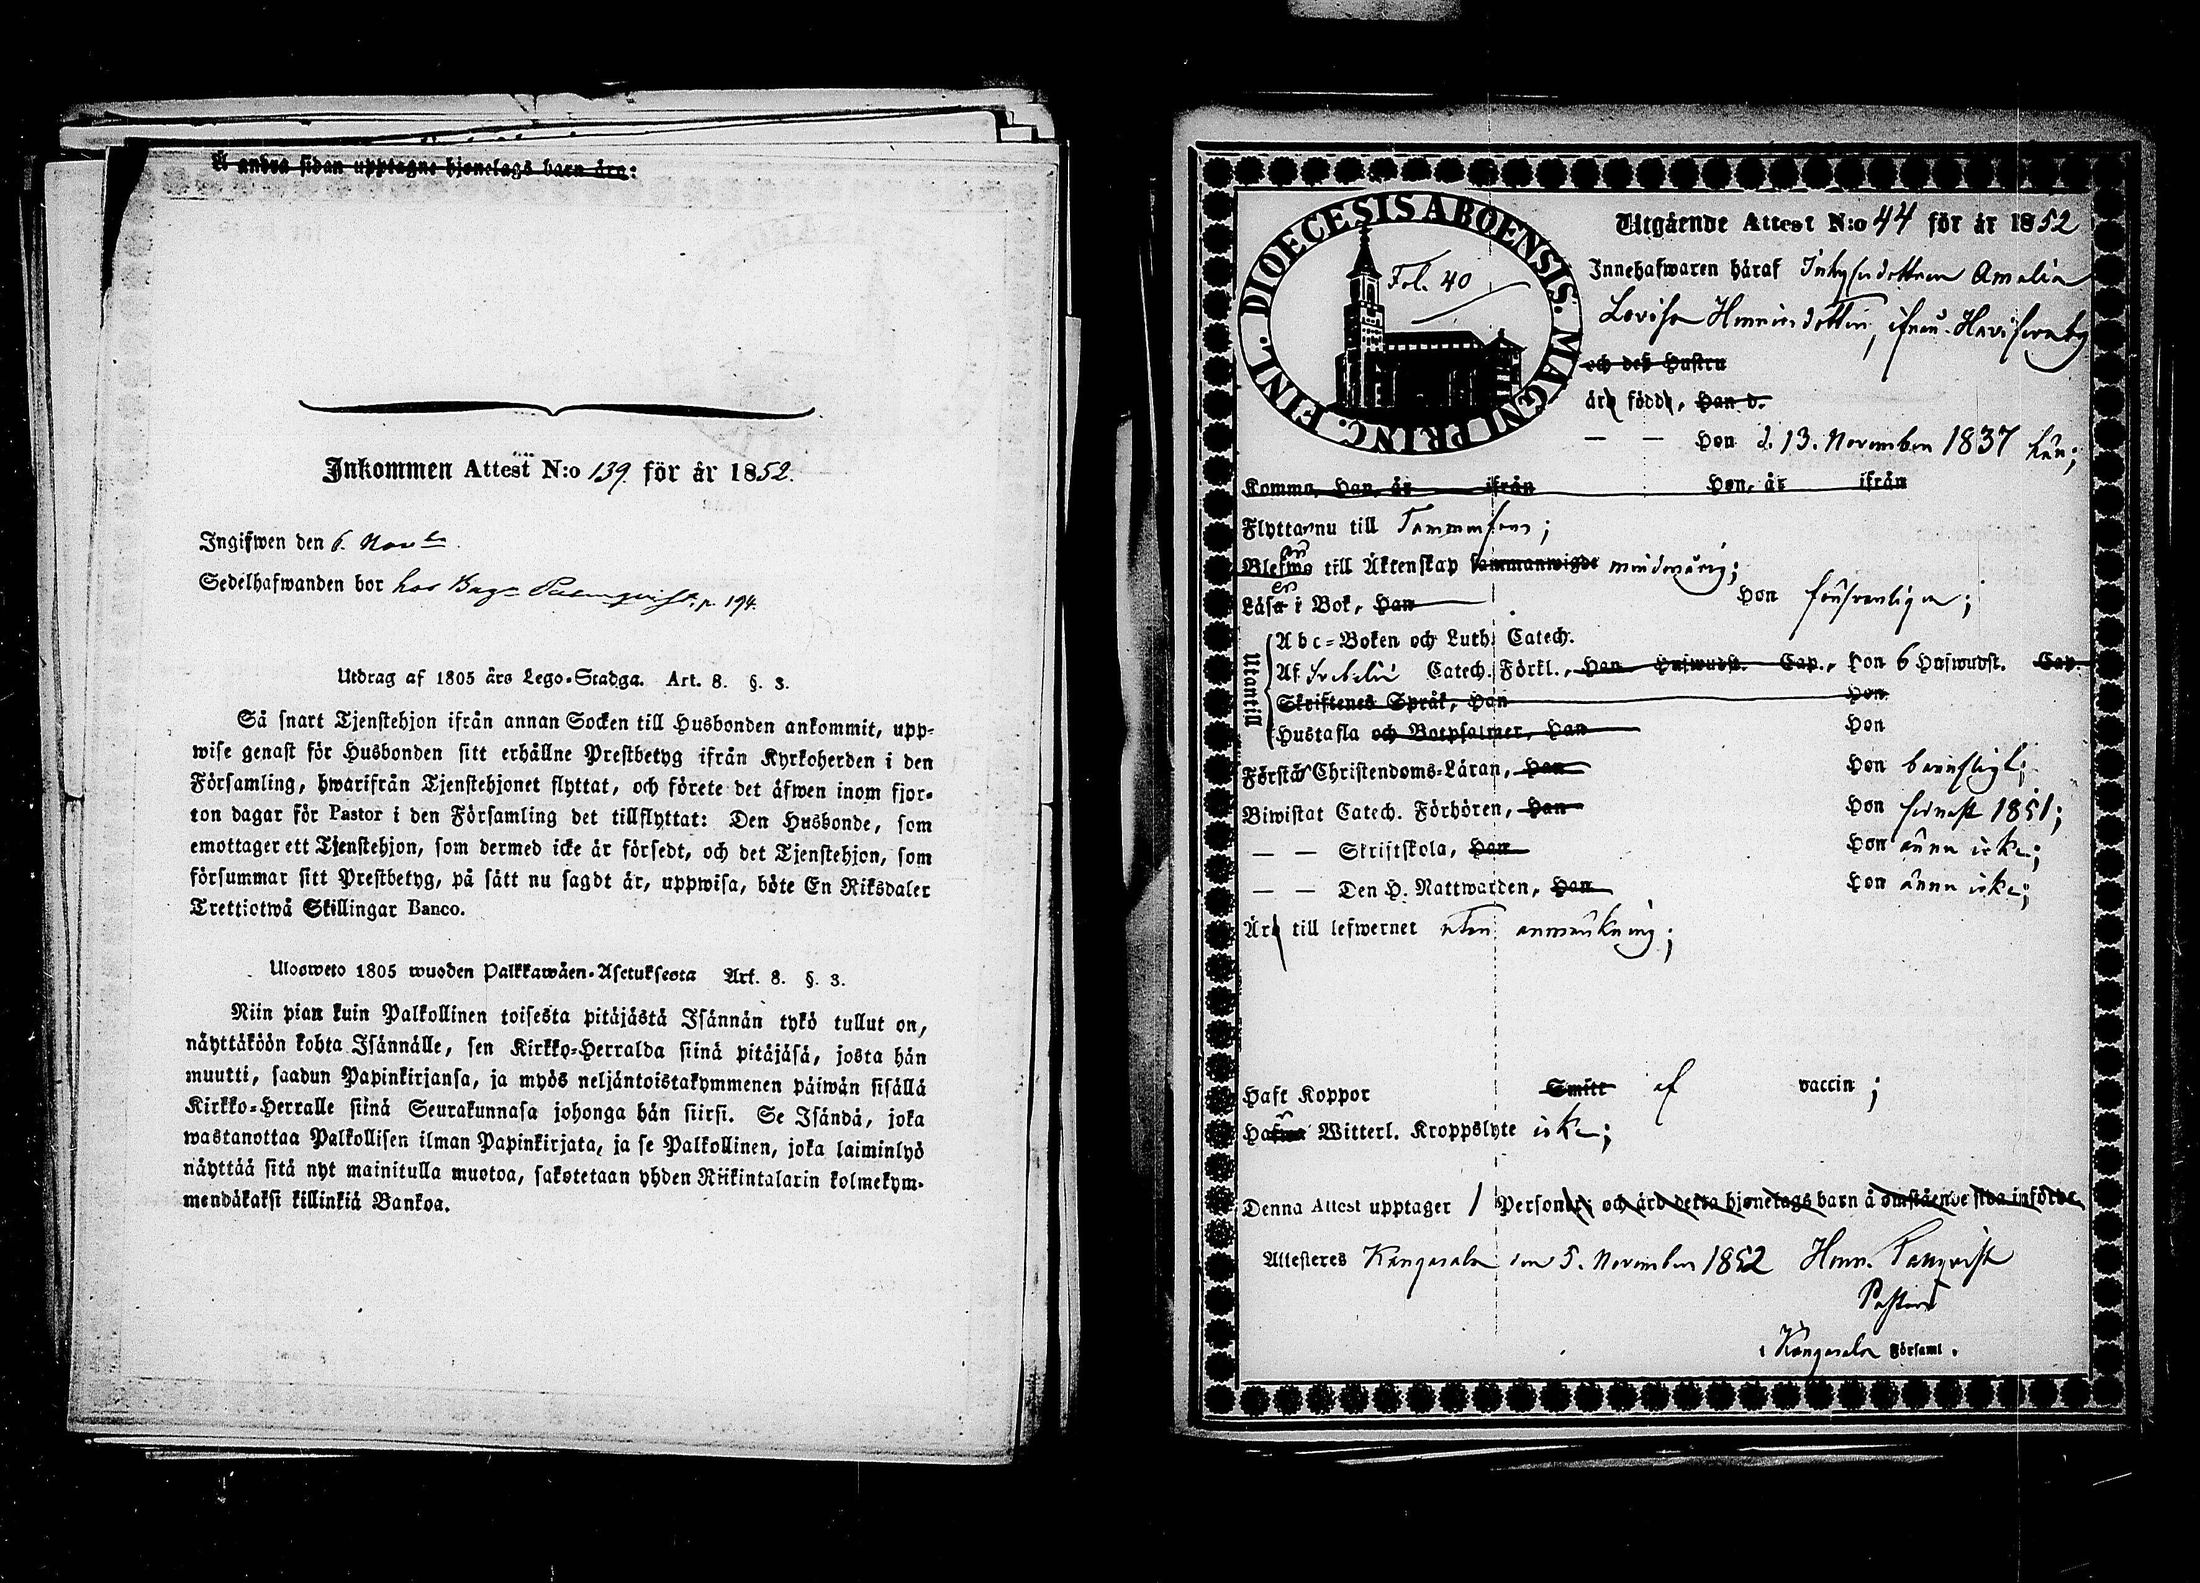 Å andra sidan upptagne hjonelags barn äro:
Inkommen Attest N:o 139 för år 1852.
Ingifwen den 6. Nov
Sedelhafwanden bor hos p. 194.
Utdrag af 1805 års Lego-Stadga. Art. 8. §. 3.
Så snart Tjenstehjon ifrån annan Socken till Husbonden ankommit, upp-
wise genast för Husbonden sitt erhållne Prestbetyg ifrån Kyrkoherden i den
Församling, hwarifrån Tjenstehjonet flyttat, och förete det äfwen inom fjor-
ton dagar för Pastor i den Församling det tillflyttat: Den Husbonde, som
emottager ett Tjenstehjon, som dermed icke är försedt, och det Tjenstehjon, som
försummar sitt Prestbetyg, på sätt nu sagdt är, uppwisa, böte En Riksdaler
Trettiotwå Skillingar Banco.
Ulosweto 1805 wuoden Palkkawäen-Asetuksesta Art. 8. §. 3.
Niin pian kuin Palkollinen toisesta pitäjästä Isännän tykö tullut on,
näyttäköön kohta Isännälle, sen Kirkko-Herralda siinä pitäjäsä, josta hän
muutti, saadun Papinkirjansa, ja myös neljäntoistakymmenen päiwän sisällä
Kirkko-Herralle siinä Seurakunnasa johonga hän siirsi. Se Isändä, joka
wastanottaa Palkollisen ilman Papinkirjata, ja se Palkollinen, joka laiminlyö
näyttää sitä nyt mainitulla muotoa, sakotetaan yhden Riikintalarin kolmekym-
mendäkaksi killinkiä Bankoa.
DIOECESIS ABOENSIS. MAGNI PRINC. FINL.
Fol. 40
Utgående Attest N:o 44 för år 1852
Innehafwaren häraf Inhysesdottren Amalia
Lovisa Henricsdotter, ifrån
och deß Hustru
äro födde, Han d.
— — Hon d. 13. November 1837 här;
Komma, Han, år ifrån Hon, år ifrån
Flytta nu till Tammerfors;
Blefwo till Äktenskap sammanwigde minderårig;
Läsa i Bok, Han Hon försvarligen;
Utantill
Abc-Boken och Luth. Catech.
Af Svebelii Catech. Förkl., Han Hufwudst. Cap., Hon 6 Hufwudst. Cap.
Skriftenes Språk, Han Hon
Hustafla och Botpsalmer, Han Hon
Förstå Christendoms-Läran, Han Hon
Biwistat Catech. Förhören, Han Hon senast 1851;
— — Skriftskola, Han Hon ännu icke;
— — Den H. Nattwarden, Han Hon ännu icke;
Äro till lefwernet utan anmärkning;
Haft Koppor Smitt af vaccin;
Hafwa Witterl. Kroppslyte icke;
Denna Attest upptager 1 Personer; och äro detta hjonelags barn å omstående sida införde.
Attesteres Kangasala den 5. November 1852 Henr.
Pastor
i Kangasala Församl.